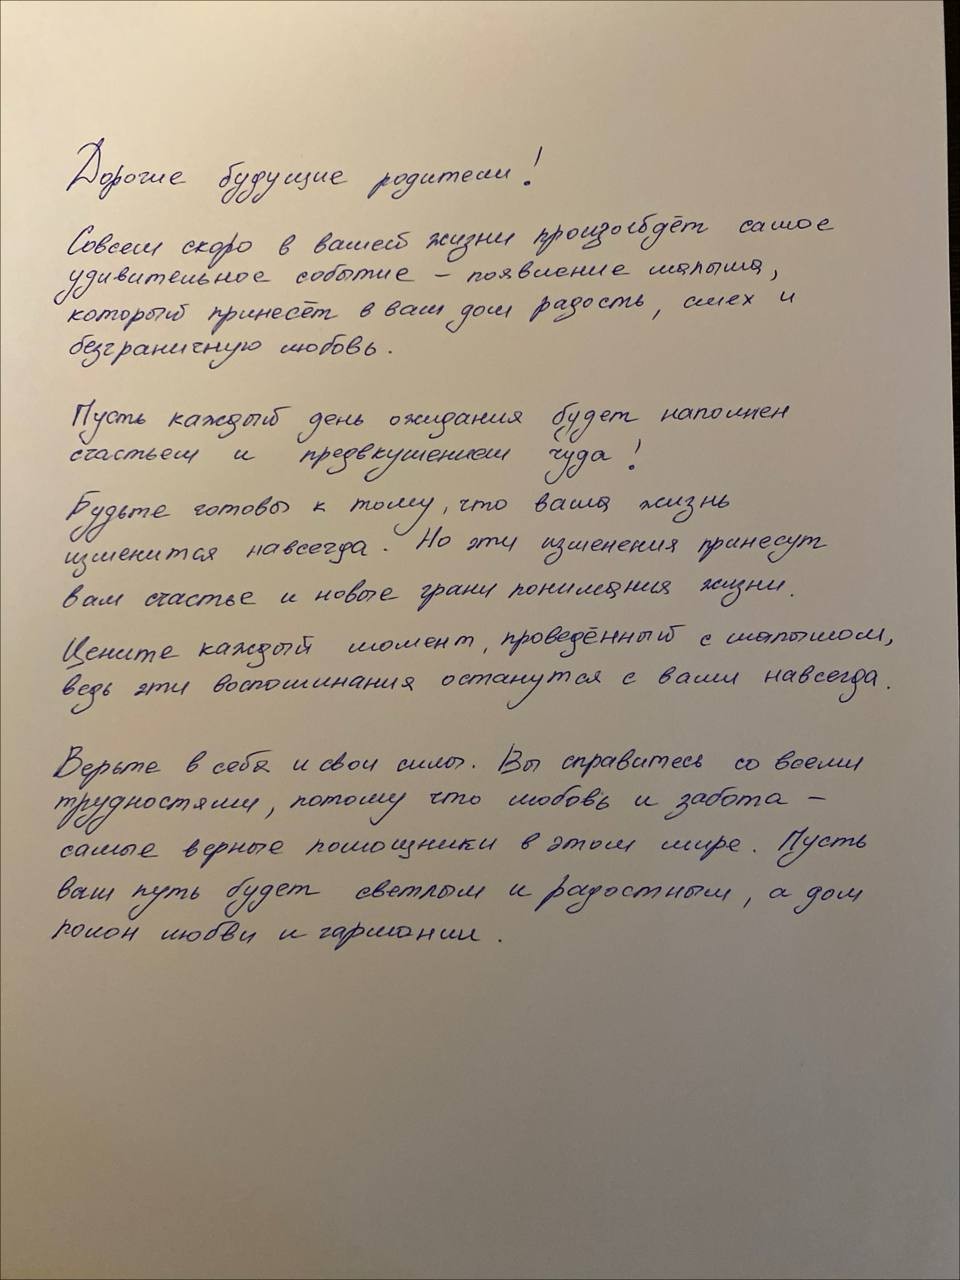 Дорогие будущие родители!
Совсем скоро в вашей жизни произойдёт самое
удивительное событие – появление малыша,
который принесёт в ваш дом радость, смех и
безграничную любовь.
Пусть каждый день ожидания будет наполнен
счастьем и предвкушением чуда!
Будьте готовы к тому, что ваша жизнь
изменится навсегда. Но эти изменения принесут
вам счастье и новые грани понимания жизни.
Цените каждый момент, проведённый с малышом,
ведь эти воспоминания останутся с вами навсегда.
Верьте в себя и свои силы. Вы справитесь со всеми
трудностями, потому что любовь и забота –
самые верные помощники в этом мире. Пусть
ваш путь будет светлым и радостным, а дом
полон любви и гармонии.